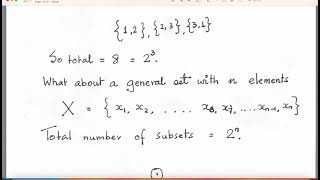 {1,2}, {2,3}, {3,1}
So total = 8 = 2³.
What about a general set with n elements
X = { x₁, x₂, .... x₈, xᵢ, .... xₙ₋₁, xₙ }
Total number of subsets = 2ⁿ.